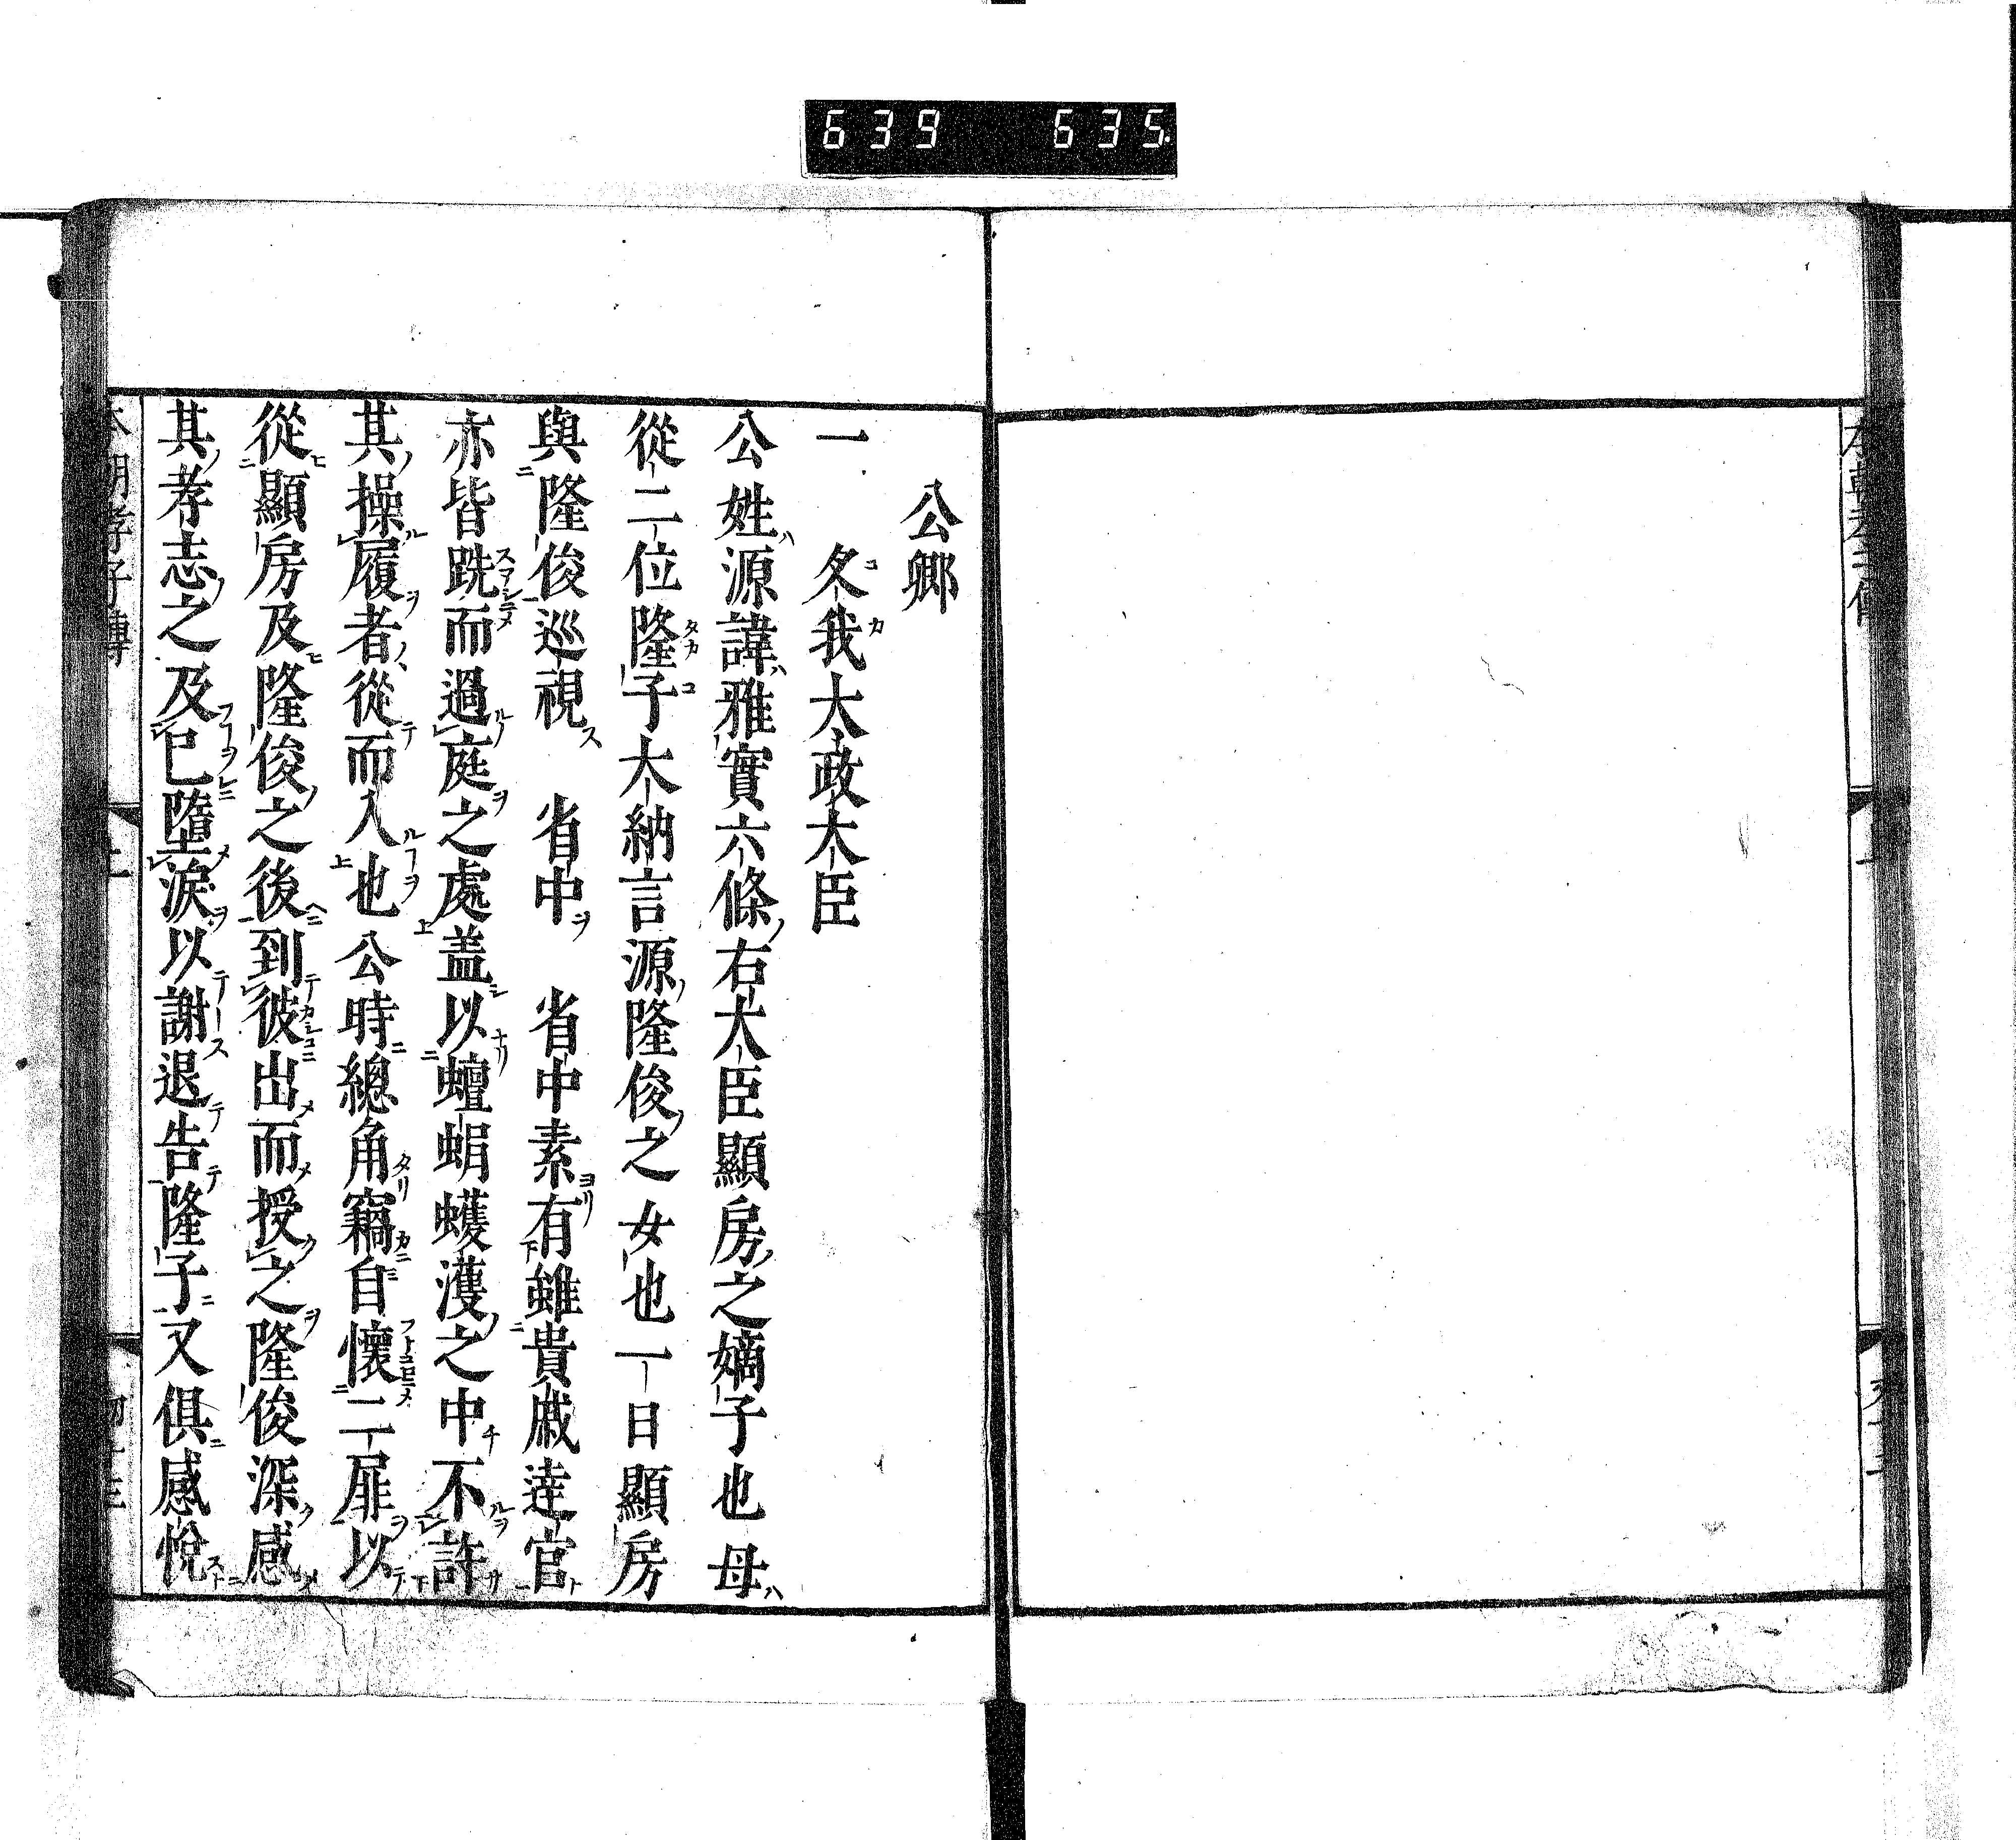 639 635
公卿
一 久我大政大臣
公姓源諱雅實六條右大臣顯房之嫡子也母
從二位隆子大納言源隆俊之女也一日顯房
與隆俊巡視 省中 省中素有雖貴戚達官
亦皆跣而過庭之處盖以蟺蜎蠖濩之中不許
其操履者從而入也公時總角竊自懷二屝以
從顯房及隆俊之後到彼出而授之隆俊深感
其孝志之及已墮淚以謝退告隆子又俱感悅
本朝孝子傳 上